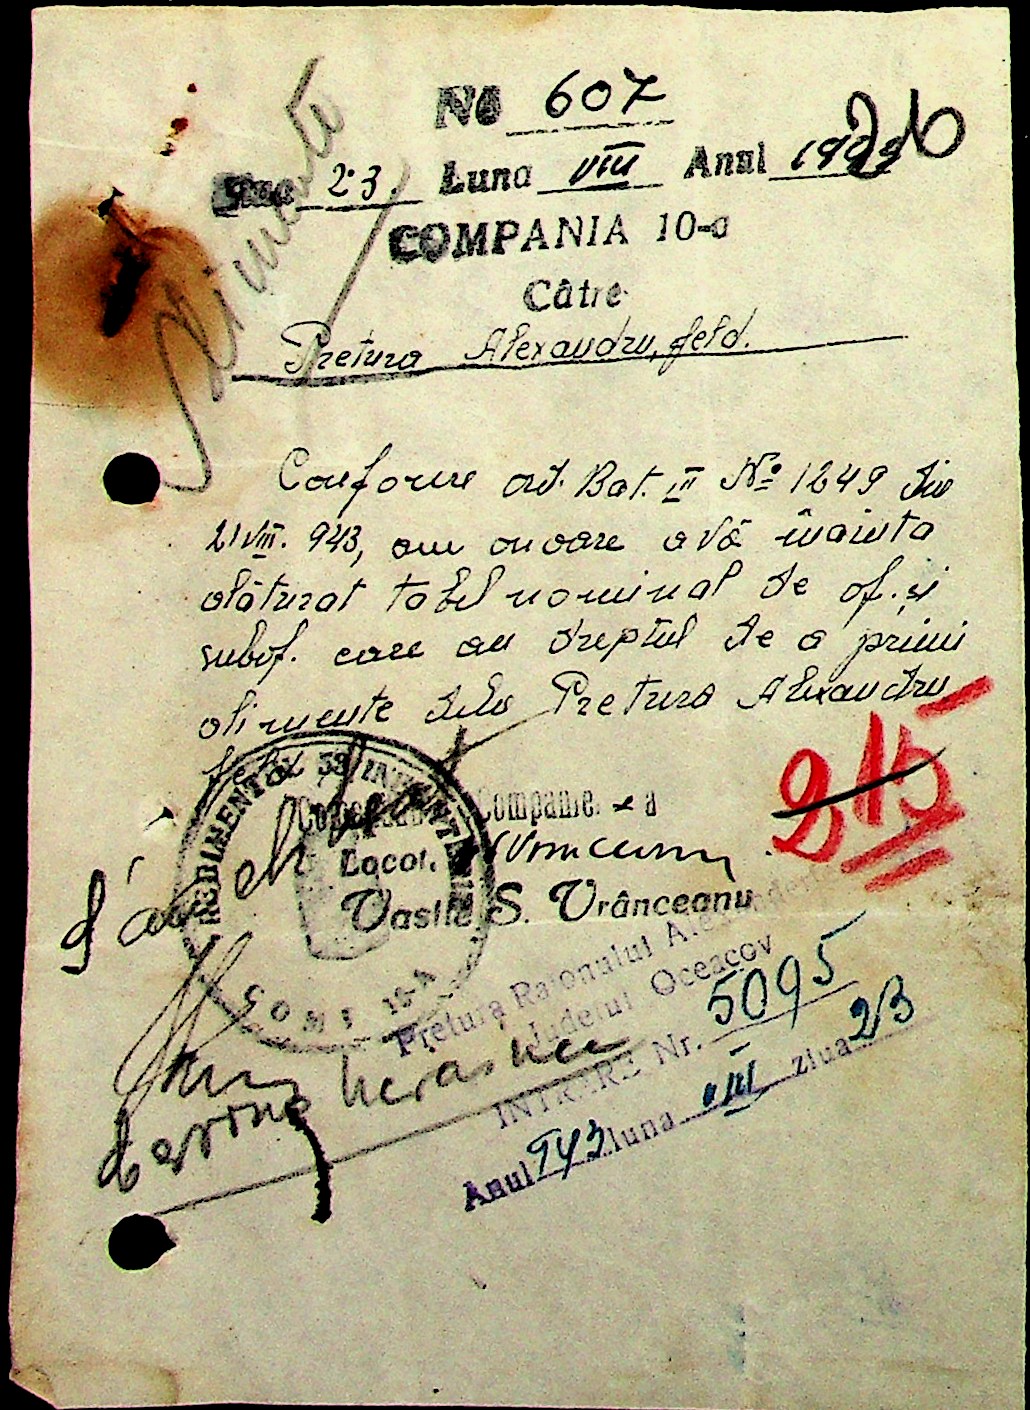 Alimente
No 607
Ziua 23. Luna VIII Anul 1943
26
COMPANIA 10-a
Către
Pretura Alexandru, feld.
Conform ord. Bat. III No 1249 din
21 VIII. 943, am onoare a vă înainta
alăturat tabel nominal de of. și
subof. care au dreptul de a primi
alimente dela Pretura Alexandru
feld
215
Comandantul Companiei a
Locot.
Vasile S. Vrânceanu
REGIMENTUL 38 INFANTERIE
COMP 10-A
Pretura Raionului Alexanderfeld
Județul Oceacov
INTRARE Nr. 5095
Anul 943 luna VIII ziua 23